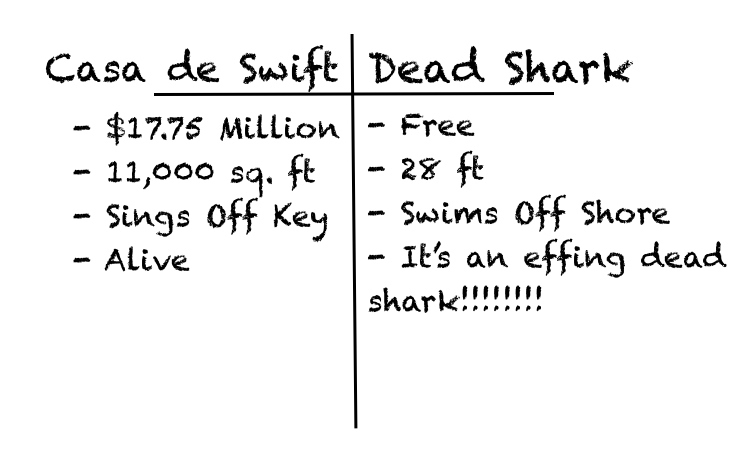 Casa de Swift
- $17.75 Million
- 11,000 sq. ft
- Sings Off Key
- Alive
Dead Shark
- Free
- 28 ft
- Swims Off Shore
- It's an effing dead
shark!!!!!!!!